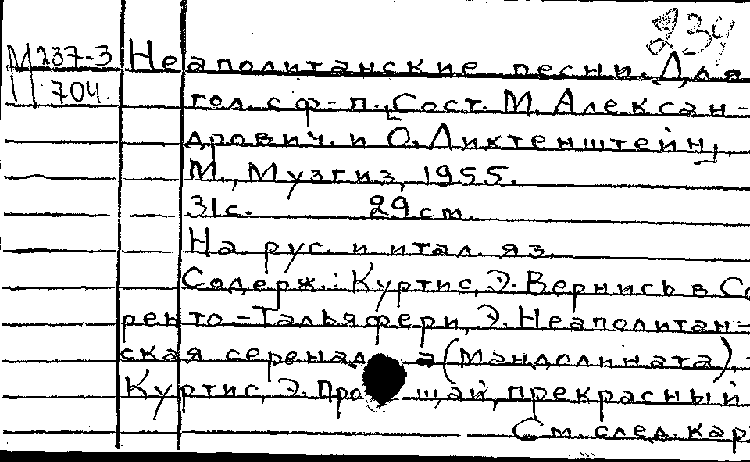 234
М 237-3 Неаполитанские песни. Для
П 704. гол. с ф-п., [Сост. М. Алексан-
дрович. и О. Лихтенштейн].
М., Музгиз, 1955.
31с. 29 см.
На рус. и итал. яз.
Содерж.: Куртис, Э. Вернись в Со
ренто - Тальяфери, Э. Неаполитан-
ская серенада (Мандолината).-
Куртис, Э. Прощай, прекрасный
См. след. кар